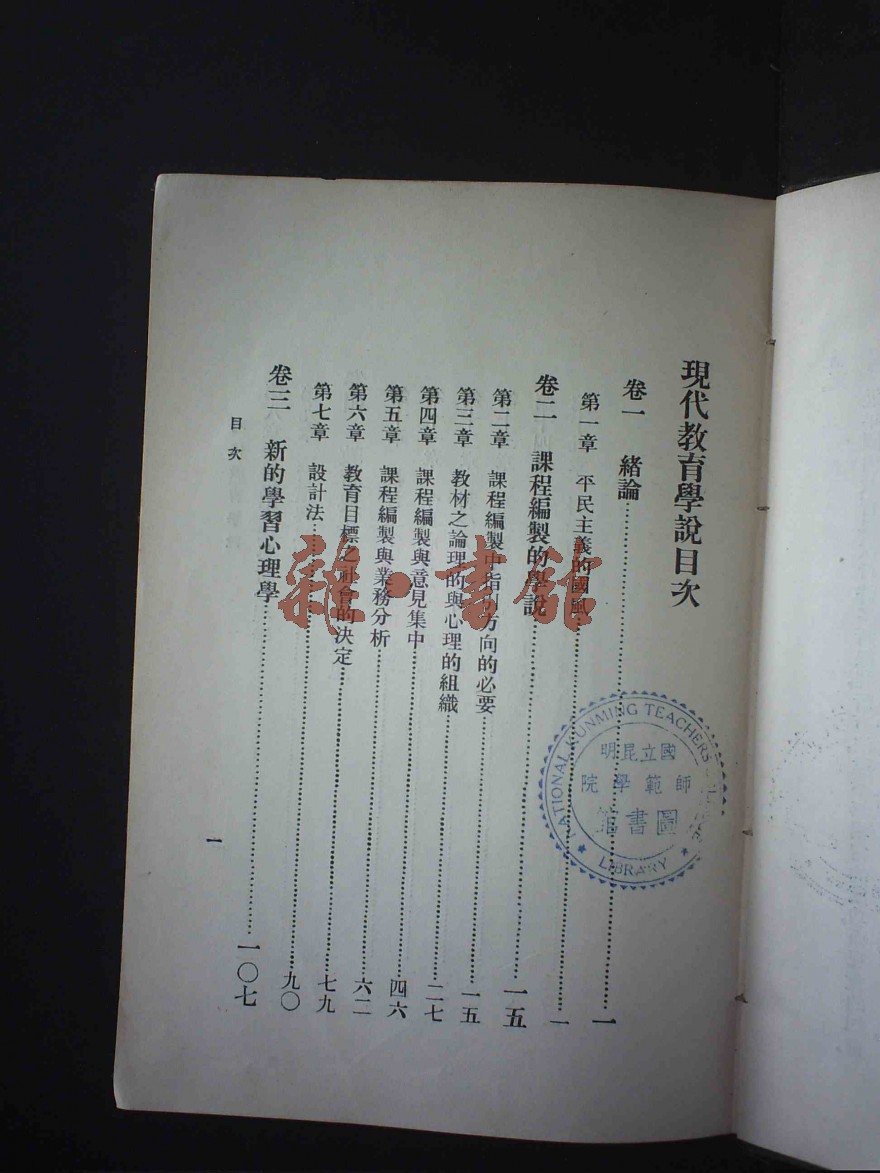 現代教育學說目次
卷一　緒論……一
第一章　平民主義的國風……一
卷二　課程編製的學說……一五
第二章　課程編製中指引方向的必要……一五
第三章　教材之論理的與心理的組織……二七
第四章　課程編製與意見集中……四六
第五章　課程編製與業務分析……六二
第六章　教育目標之社會的決定……七九
第七章　設計法……九〇
卷三　新的學習心理學……一〇七
目次
一
NATIONAL KUNMING TEACHERS
國立昆明
師範學院
圖書館
LIBRARY
雜·書館